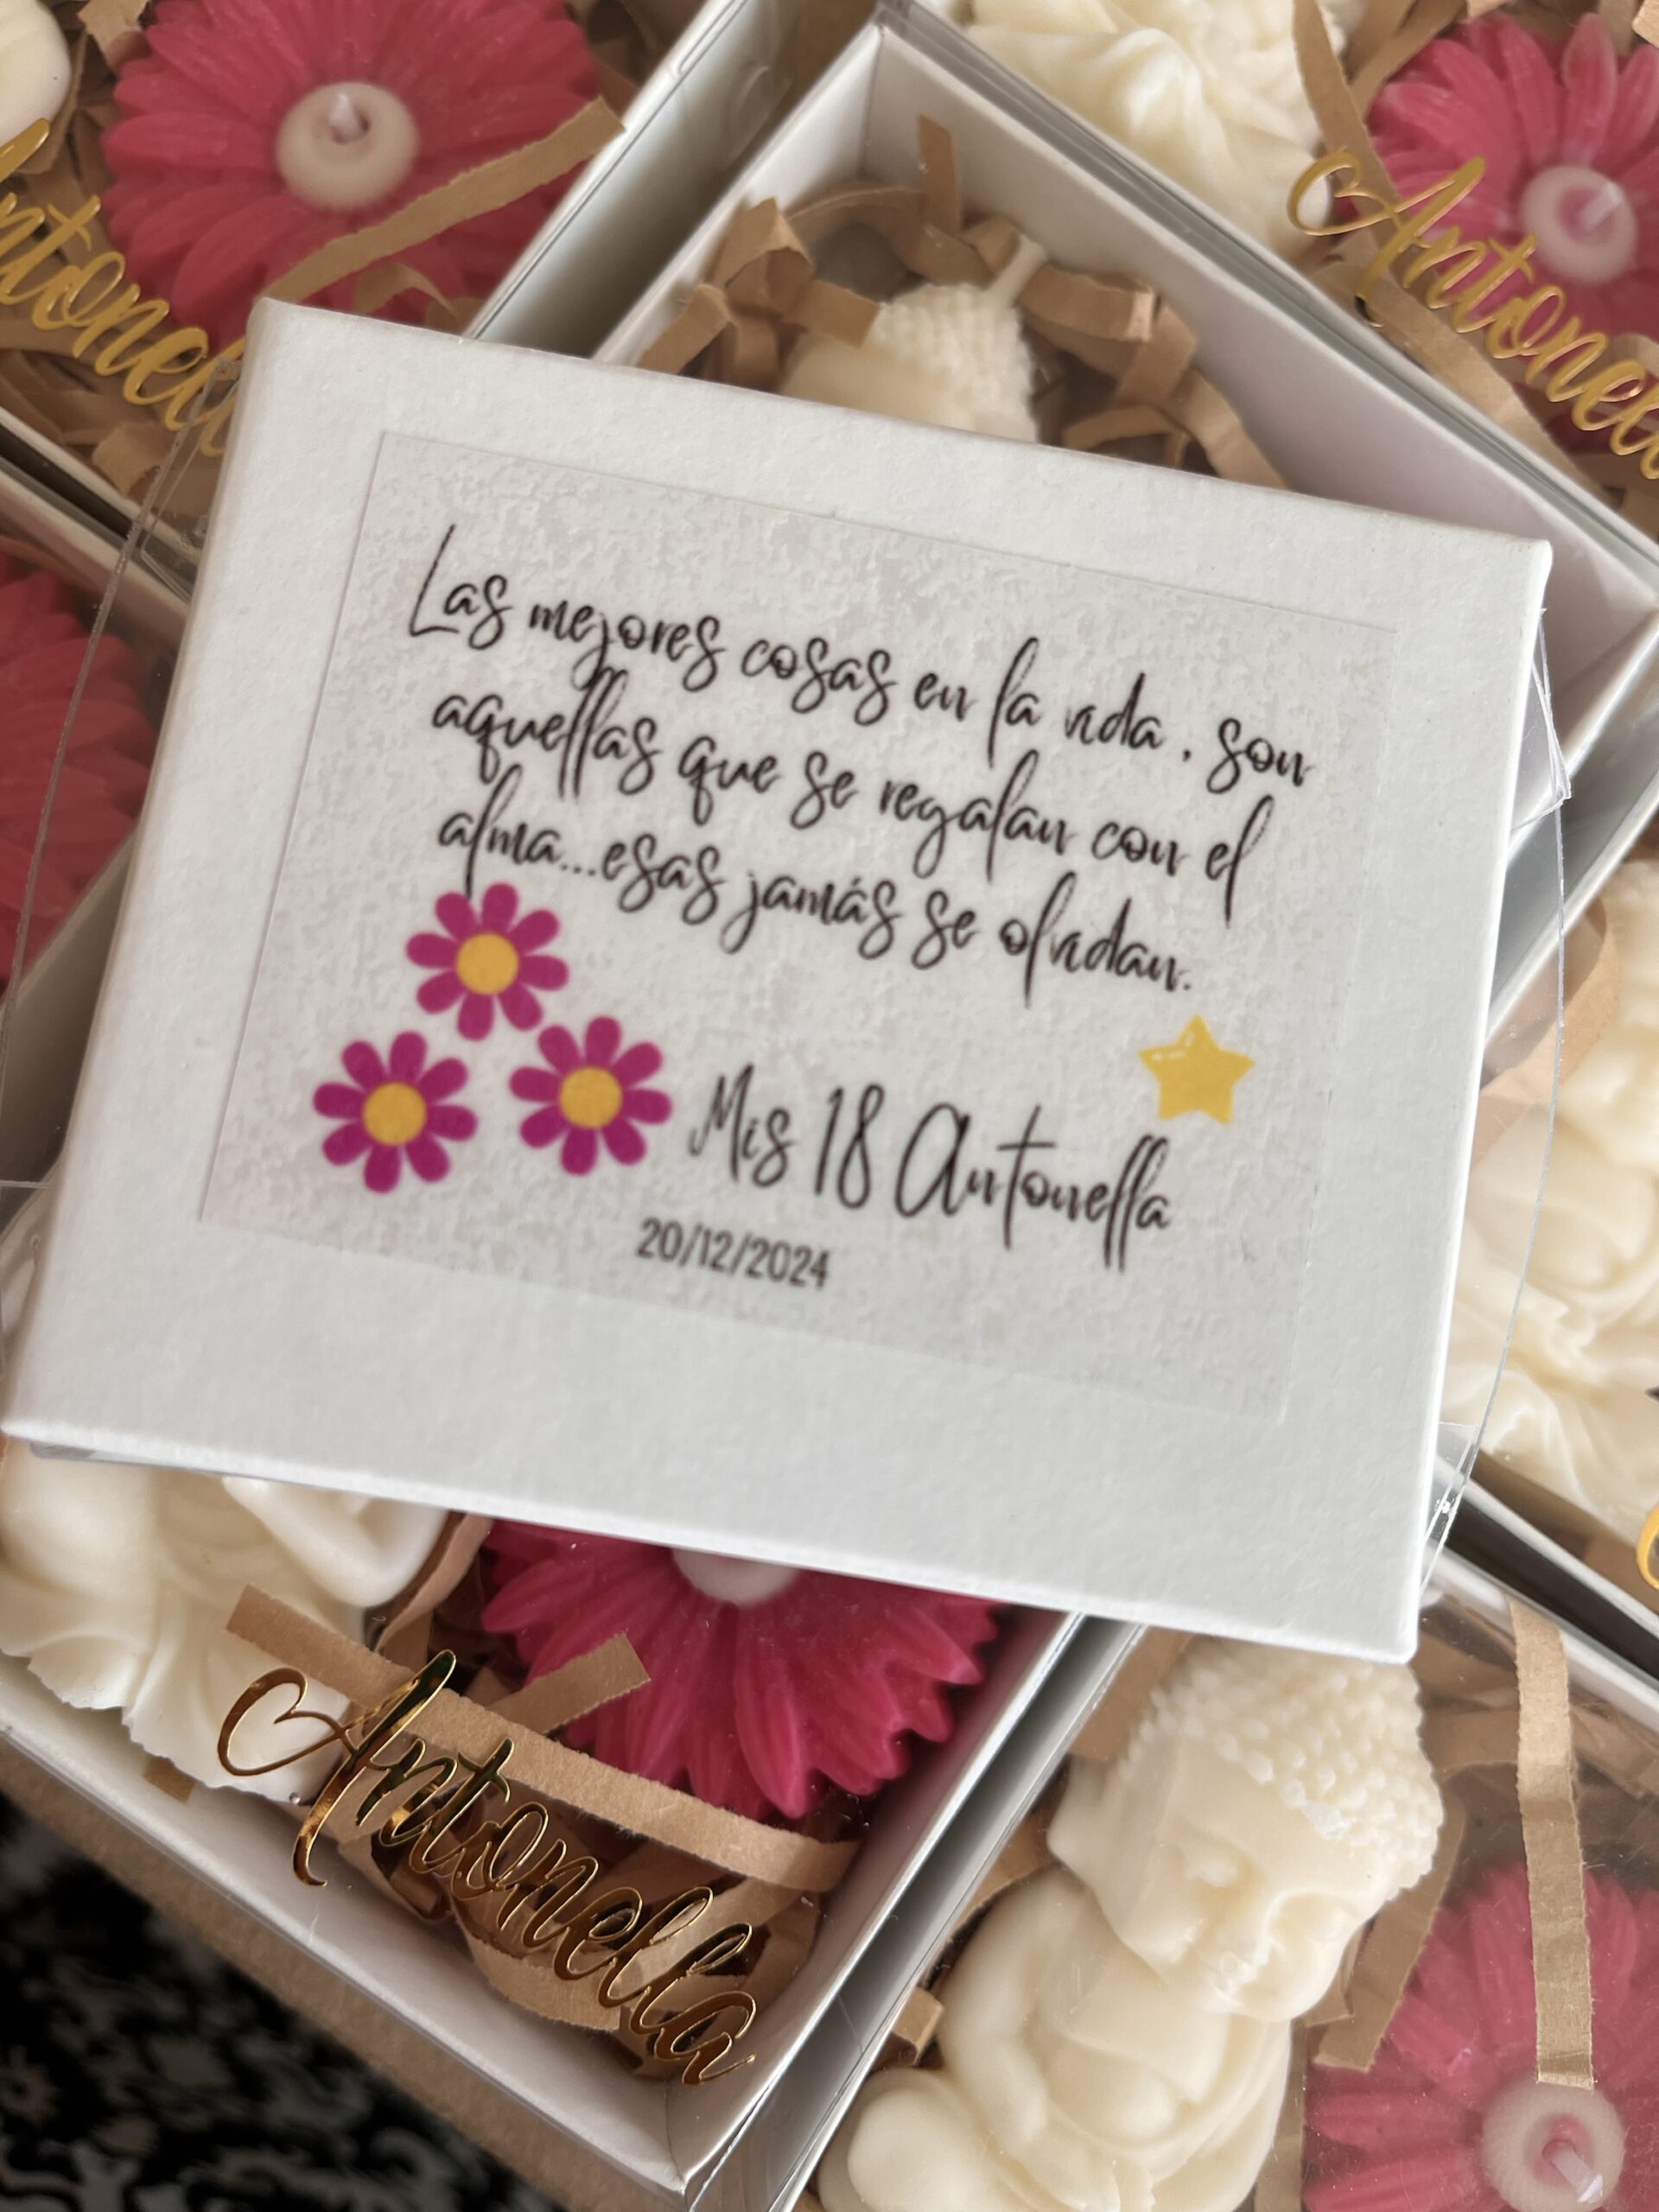 Antonell
Antonell
Las mejores cosas en la vida . son
aquellas que se regalan con el
alma...esas jamás se olvidan.
Mis 18 Antonella
20/12/2024
Antonella